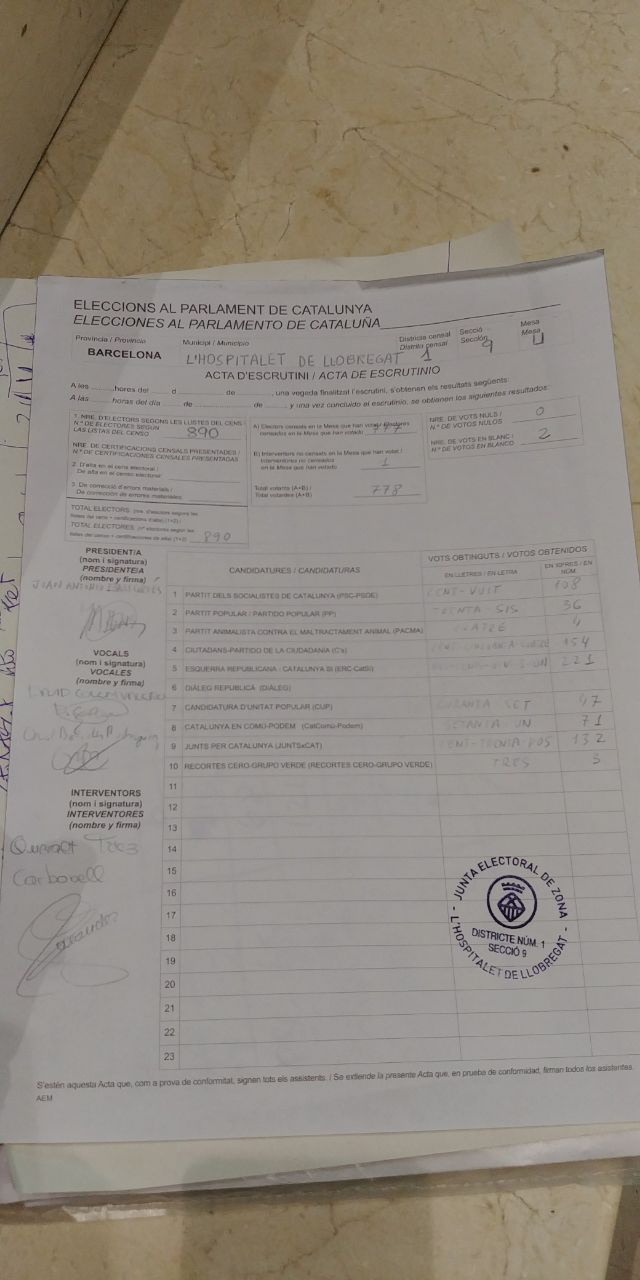 ELECCIONS AL PARLAMENT DE CATALUNYA
ELECCIONES AL PARLAMENTO DE CATALUÑA
Província / Provincia
BARCELONA
Municipi / Municipio
L'HOSPITALET DE LLOBREGAT
Districte censal
Distrito censal 1
Secció
Sección 9
Mesa
Mesa U
ACTA D'ESCRUTINI / ACTA DE ESCRUTINIO
A les ...... hores del ...... d ...... de ......, una vegada finalitzat l'escrutini, s'obtenen els resultats següents:
A las ...... horas del día ...... de ...... de ...... y una vez concluido el escrutinio, se obtienen los siguientes resultados:
1. NRE. D'ELECTORS SEGONS LES LLISTES DEL CENS /
N.º DE ELECTORES SEGÚN
LAS LISTAS DEL CENSO 890
NRE. DE CERTIFICACIONS CENSALS PRESENTADES /
N.º DE CERTIFICACIONES CENSALES PRESENTADAS
2. D'alta en el cens electoral /
De alta en el censo electoral
3. De correcció d'errors materials /
De corrección de errores materiales
TOTAL ELECTORS: (nre. d'electors segons les
llistes del cens + certificacions d'alta) (1+2) /
TOTAL ELECTORES: (nº electores según las
listas del censo + certificaciones de alta) (1+2) 890
A) Electors censats en la Mesa que han votat / Electores
censados en la Mesa que han votado 777
B) Interventors no censats en la Mesa que han votat /
Interventores no censados
en la Mesa que han votado 1
Total votants (A+B) /
Total votantes (A+B) 778
NRE. DE VOTS NULS /
N.º DE VOTOS NULOS 0
NRE. DE VOTS EN BLANC /
N.º DE VOTOS EN BLANCO 2
PRESIDENT/A
(nom i signatura)
PRESIDENTE/A
(nombre y firma)
JUAN ANTONIO
VOCALS
(nom i signatura)
VOCALES
(nombre y firma)
INTERVENTORS
(nom i signatura)
INTERVENTORES
(nombre y firma)
Queralt
Carbonell
CANDIDATURES / CANDIDATURAS
VOTS OBTINGUTS / VOTOS OBTENIDOS
EN LLETRES / EN LETRA
EN XIFRES / EN NÚM.
1 PARTIT DELS SOCIALISTES DE CATALUNYA (PSC-PSOE) CENT-VUIT 108
2 PARTIT POPULAR / PARTIDO POPULAR (PP) TRENTA SIS 36
3 PARTIT ANIMALISTA CONTRA EL MALTRACTAMENT ANIMAL (PACMA) 4
4 CIUTADANS-PARTIDO DE LA CIUDADANÍA (C's) 154
5 ESQUERRA REPUBLICANA - CATALUNYA SÍ (ERC-CatSí) 221
6 DIÀLEG REPUBLICÀ (DIÀLEG)
7 CANDIDATURA D'UNITAT POPULAR (CUP) SET 47
8 CATALUNYA EN COMÚ-PODEM (CatComú-Podem) SETANTA-UN 71
9 JUNTS PER CATALUNYA (JUNTSxCAT) CENT-TRENTA-DOS 132
10 RECORTES CERO-GRUPO VERDE (RECORTES CERO-GRUPO VERDE) TRES 3
11
12
13
14
15
16
17
18
19
20
21
22
23
JUNTA ELECTORAL DE ZONA
DISTRICTE NÚM. 1
SECCIÓ 9
L'HOSPITALET DE LLOBREGAT
S'estén aquesta Acta que, com a prova de conformitat, signen tots els assistents. / Se extiende la presente Acta que, en prueba de conformidad, firman todos los asistentes.
AEM